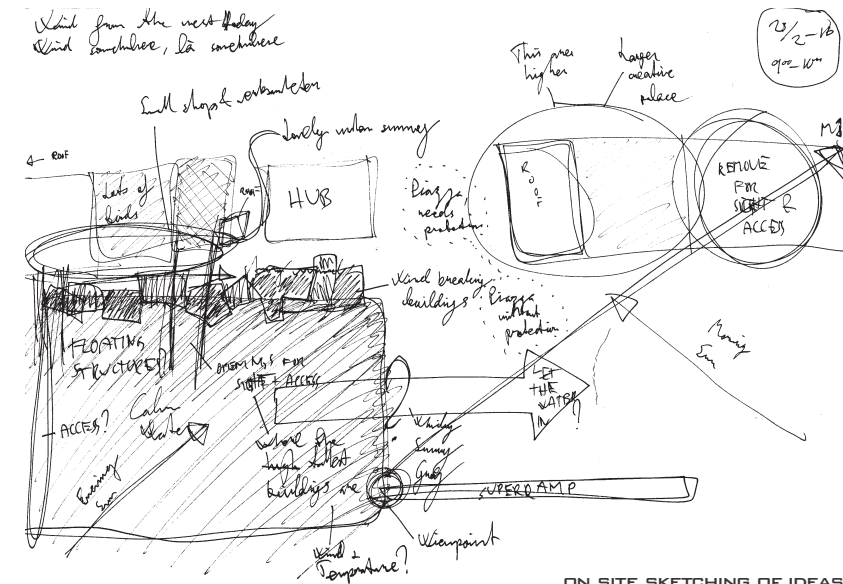 Wind from the west today
Wind somewhere, là somewhere
23/2-16
9⁰⁰-10⁰⁰
This area
higher
Larger
creative
place
Small shops &
Lovely urban
← ROOF
Lots of
ROOF
HUB
Piazza,
needs
protection
ROOF
REMOVE
FOR
SIGHT &
ACCESS
Wind breaking
buildings
Piazza
without
protection
Morning
Sun
FLOATING
STRUCTURES?
OPENINGS FOR
SIGHT + ACCESS
LET
THE
WATER
IN?
ACCESS?
Calm
Water
where the
high
buildings are
Windy
Sunny
Evening
Sun
SUPERDAMP
Viewpoint
Wind &
Temperature?
ON SITE SKETCHING OF IDEAS